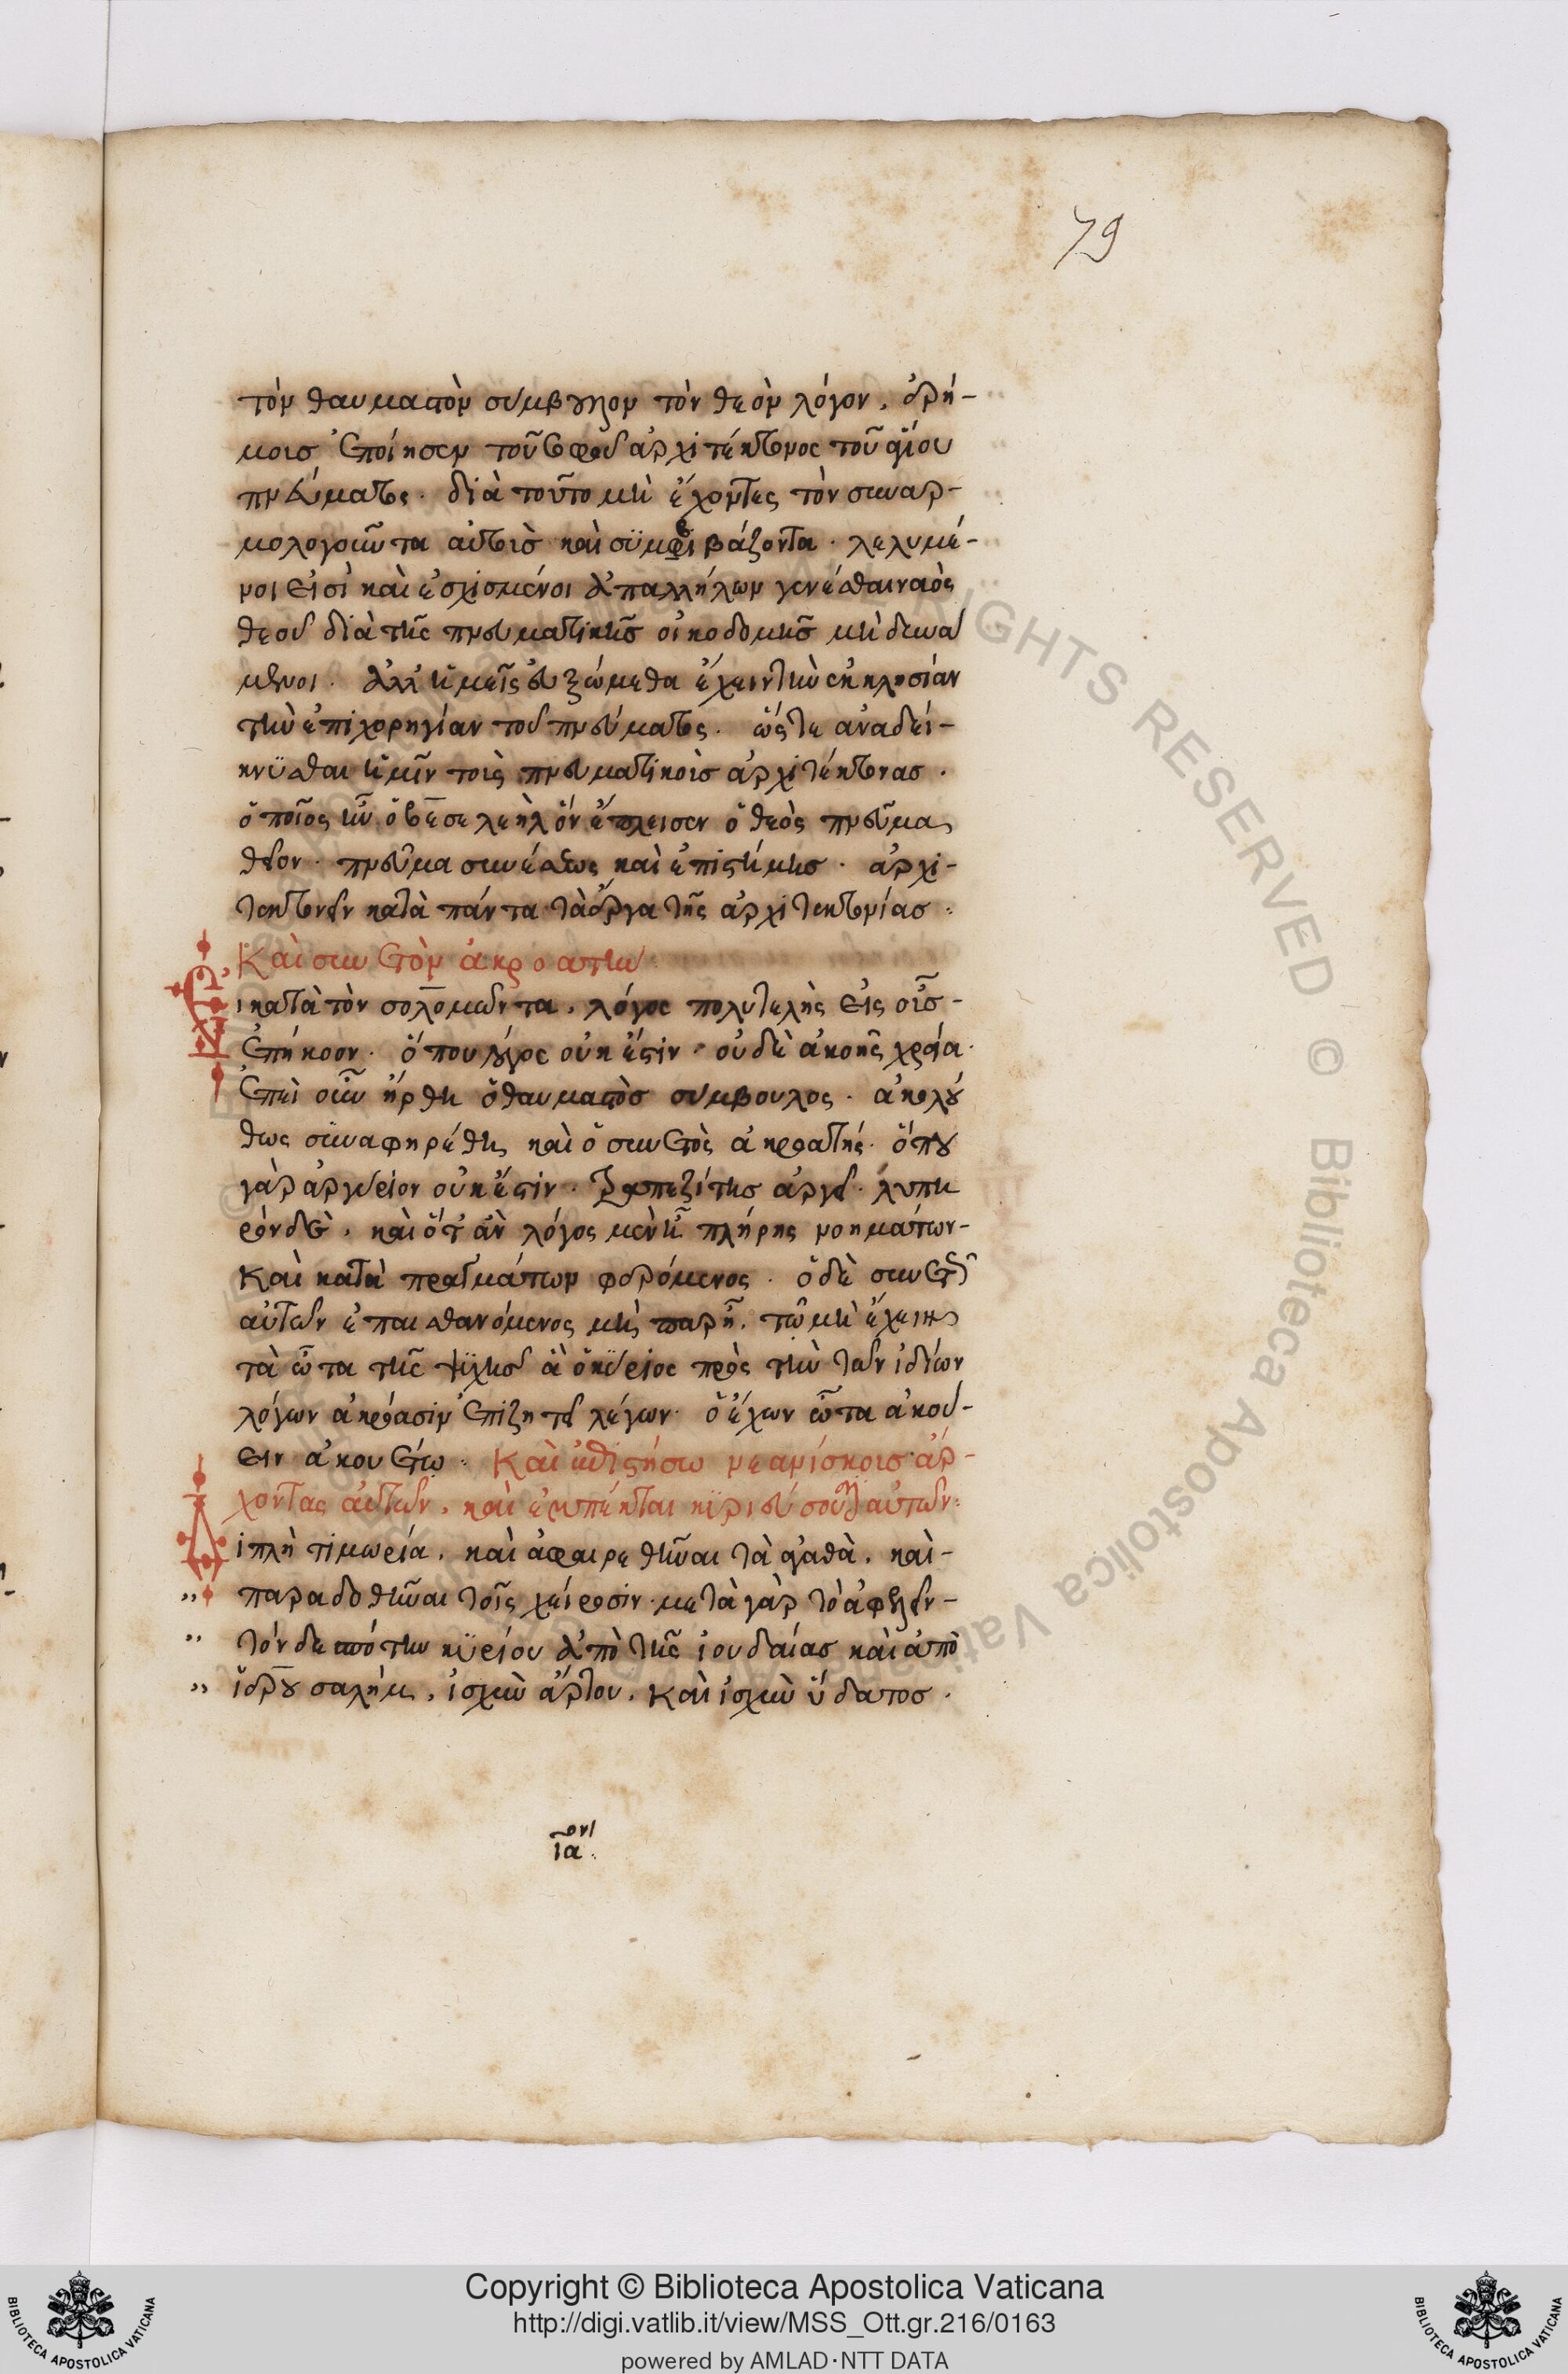 79
τὸν θαυμαστὸν σύμβουλον τὸν θεὸν λόγον, ἐρή-
μοις ἐποίησεν τοῦ σοφοῦ ἀρχιτέκτονος τοῦ ἁγίου
πνεύματος. διὰ τοῦτο μὴ ἔχοντες τὸν συναρ-
μολογοῦντα αὐτοῖς καὶ συμβιβάζοντα. λελυμέ-
νοι εἰσὶ καὶ ἐσχισμένοι ἀπ' ἀλλήλων γενέσθαι ναὸς
θεοῦ διὰ τῆς πνευματικῆς οἰκοδομῆς μὴ δυνά
μενοι. ἀλλ' ἡμεῖς εὐξώμεθα ἔχειν τὴν ἐκκλησίαν
τὴν ἐπιχορηγίαν τοῦ πνεύματος. ὥστε ἀναδεί-
κνυσθαι ἡμῖν τοὶς πνευματικοὶς ἀρχιτέκτονας.
ὁποῖος ἦν ὁ βεσελεὴλ ὃν ἔπλεισεν ὁ θεὸς πνεῦμα
θεῖον. πνεῦμα συνέσεως καὶ ἐπιστήμης. ἀρχι-
τεκτονεῖν κατὰ πάντα τὰ ἔργα τῆς ἀρχιτεκτονίας:
Καὶ συνετὸν ἀκροατὴν
κατὰ τὸν σολομῶντα, λόγος πολυτελὴς εἰς οὖς-
ἐπήκοον. ὅπου λόγος οὐκ ἔστιν. οὐδὲ ἀκοῆς χρεία.
Ἐπεὶ οὖν ἤρθη ὁ θαυμαστὸς σύμβουλος. ἀκολού
θως συναφηρέθη καὶ ὁ συνετὸς ἀκροατής. ὅπου
γὰρ ἀργύριον οὐκ ἔστιν. τραπεζίτης ἀργεῖ. λυπη
ρὸν δὲ, καὶ ὅτ' ἂν λόγος μὲν ἦ πλήρης νοημάτων-
Καὶ κατὰ πραγμάτων φερόμενος. ὁ δὲ συνετῶς
αὐτῶν ἐπαισθανόμενος μὴ παρῆ. τῶ μὴ ἔχειν
τὰ ὦτα τῆς ψυχῆς ἃ ὁ κύριος πρὸς τὴν τῶν ἰδίων
λόγων ἀκρόασιν ἐπιζητεῖ λέγων. ὁ ἔχων ὦτα ἀκού-
ειν ἀκουέτω. Καὶ ἐπιστήσω νεανίσκοις ἄρ-
χοντας αὐτῶν, καὶ ἐμπέκται κυριεύσουσιν αὐτῶν:
Διπλὴ τιμωρία, καὶ ἀφαιρεθῆναι τὰ ἀγαθὰ, καὶ-
παραδοθῆναι τοῖς χείροσιν. μετὰ γὰρ τὸ ἀφελεῖν-
τὸν δεσπότην κύριον ἀπὸ τῆς ἰουδαίας καὶ ἀπὸ
ἱερουσαλὴμ, ἰσχὺν ἄρτου, καὶ ἰσχὺν ὕδατος.
ια:
Copyright © Biblioteca Apostolica Vaticana
http://digi.vatlib.it/view/MSS_Ott.gr.216/0163
powered by AMLAD·NTT DATA
BIBLIOTECA APOSTOLICA VATICANA
BIBLIOTECA APOSTOLICA VATICANA